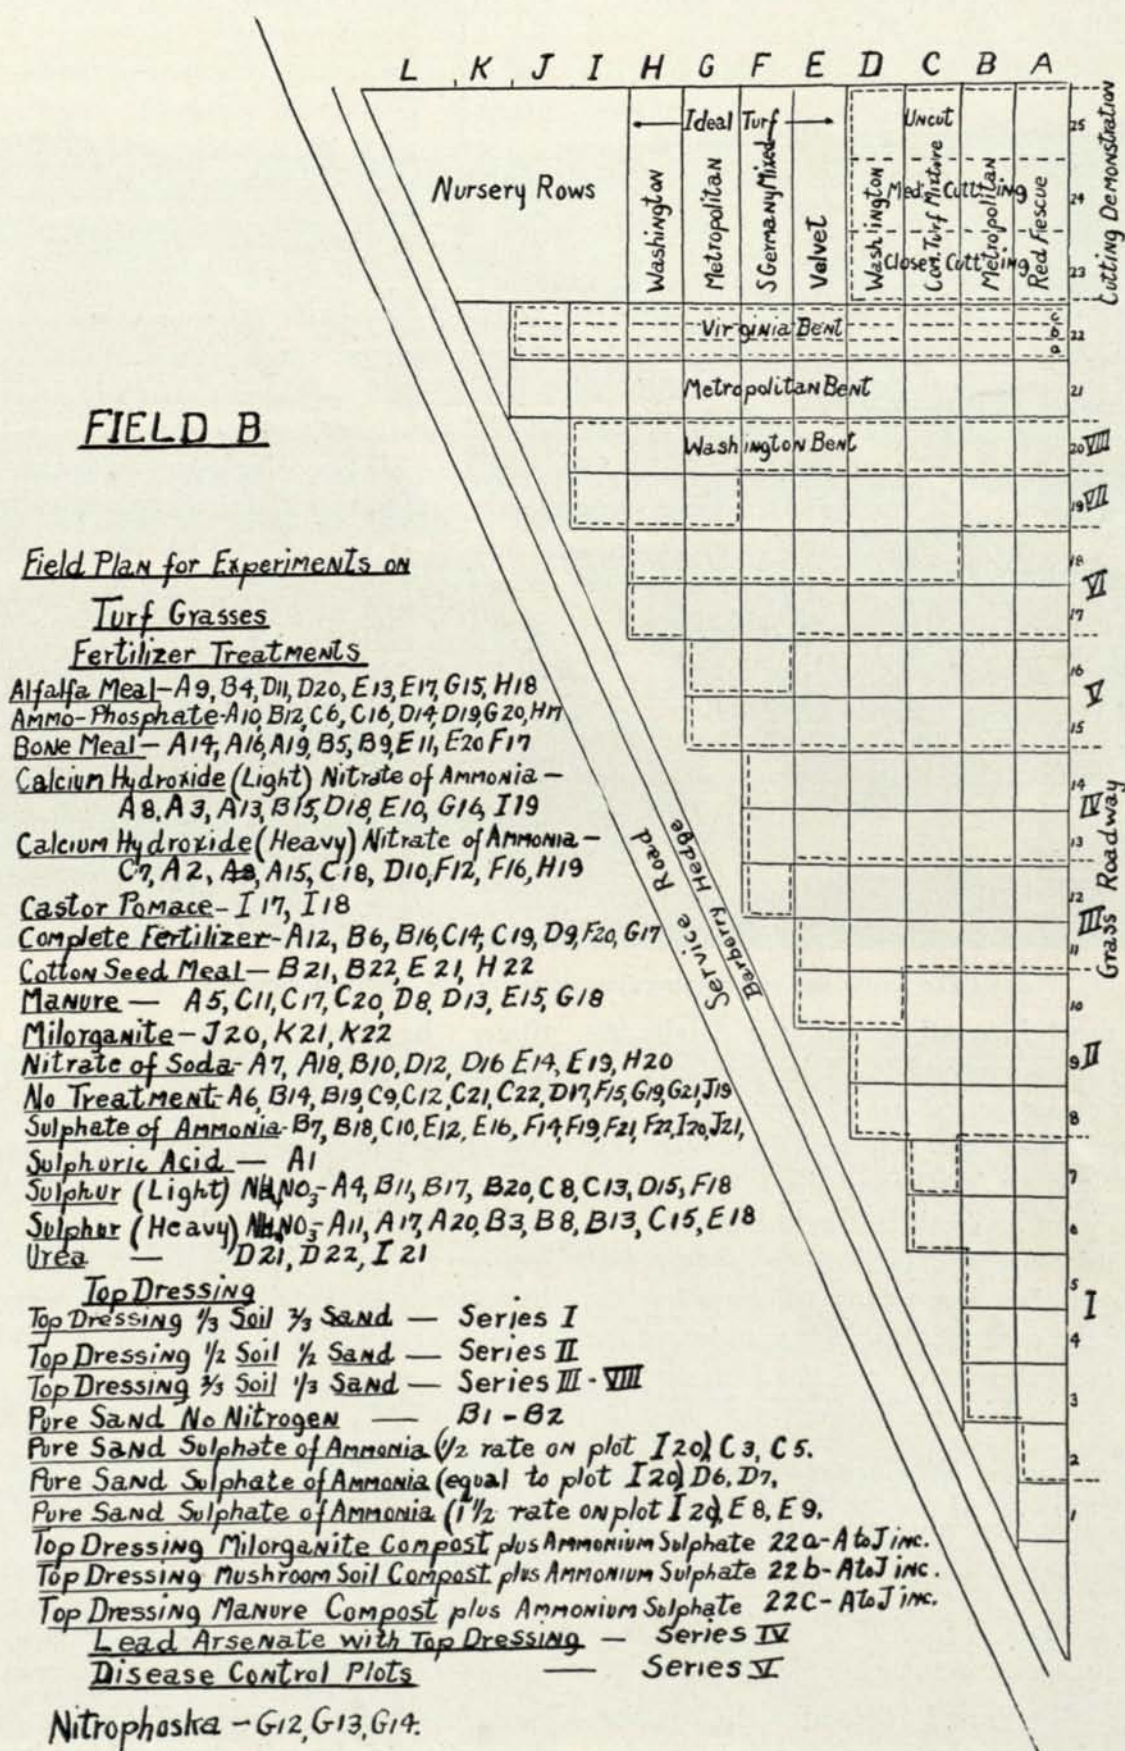 L K J I H G F E D C B A
Ideal Turf
Uncut
25
Nursery Rows
Washington
Metropolitan
S German Mixed
Velvet
Washington
Com. Turf Mixture
Metropolitan
Red Fiescue
Med. Cuttting
24
Close Cuttting
23
Cutting Demonstration
Virginia Bent
c
b
a
22
Metropolitan Bent
21
Washington Bent
20 VIII
19 VII
18
VI
17
16
V
15
14
IV
13
12
III
11
10
9 II
8
7
6
5
I
4
3
2
1
Grass Roadway
Service Road
Barberry Hedge
FIELD B
Field Plan for Experiments on
Turf Grasses
Fertilizer Treatments
Alfalfa Meal-A9, B4, D11, D20, E13, E17, G15, H18
Ammo-Phosphate-A10, B12, C6, C16, D14, D19, G20, H17
Bone Meal - A14, A16, A19, B5, B9, E11, E20 F17
Calcium Hydroxide (Light) Nitrate of Ammonia -
A8, A3, A13, B15, D18, E10, G16, I19
Calcium Hydroxide (Heavy) Nitrate of Ammonia -
C7, A2, A8, A15, C18, D10, F12, F16, H19
Castor Pomace - I17, I18
Complete Fertilizer-A12, B6, B16, C14, C19, D9, F20, G17
Cotton Seed Meal - B21, B22, E21, H22
Manure - A5, C11, C17, C20, D8, D13, E15, G18
Milorganite - J20, K21, K22
Nitrate of Soda-A7, A18, B10, D12, D16 E14, E19, H20
No Treatment-A6, B14, B19, C9, C12, C21, C22, D17, F15, G19, G21, J19
Sulphate of Ammonia-B7, B18, C10, E12, E16, F14, F19, F21, F22, I20, J21,
Sulphuric Acid - A1
Sulphur (Light) NH4NO3-A4, B11, B17, B20, C8, C13, D15, F18
Sulphur (Heavy) NH4NO3-A11, A17, A20, B3, B8, B13, C15, E18
Urea - D21, D22, I21
Top Dressing
Top Dressing 1/3 Soil 2/3 Sand - Series I
Top Dressing 1/2 Soil 1/2 Sand - Series II
Top Dressing 2/3 Soil 1/3 Sand - Series III - VIII
Pure Sand No Nitrogen - B1 - B2
Pure Sand Sulphate of Ammonia (1/2 rate on plot I20) C3, C5.
Pure Sand Sulphate of Ammonia (equal to plot I20) D6, D7.
Pure Sand Sulphate of Ammonia (1 1/2 rate on plot I20), E8, E9.
Top Dressing Milorganite Compost plus Ammonium Sulphate 22a-A to J inc.
Top Dressing Mushroom Soil Compost plus Ammonium Sulphate 22b-A to J inc.
Top Dressing Manure Compost plus Ammonium Sulphate 22C-A to J inc.
Lead Arsenate with Top Dressing - Series IV
Disease Control Plots - Series V
Nitrophoska - G12, G13, G14.